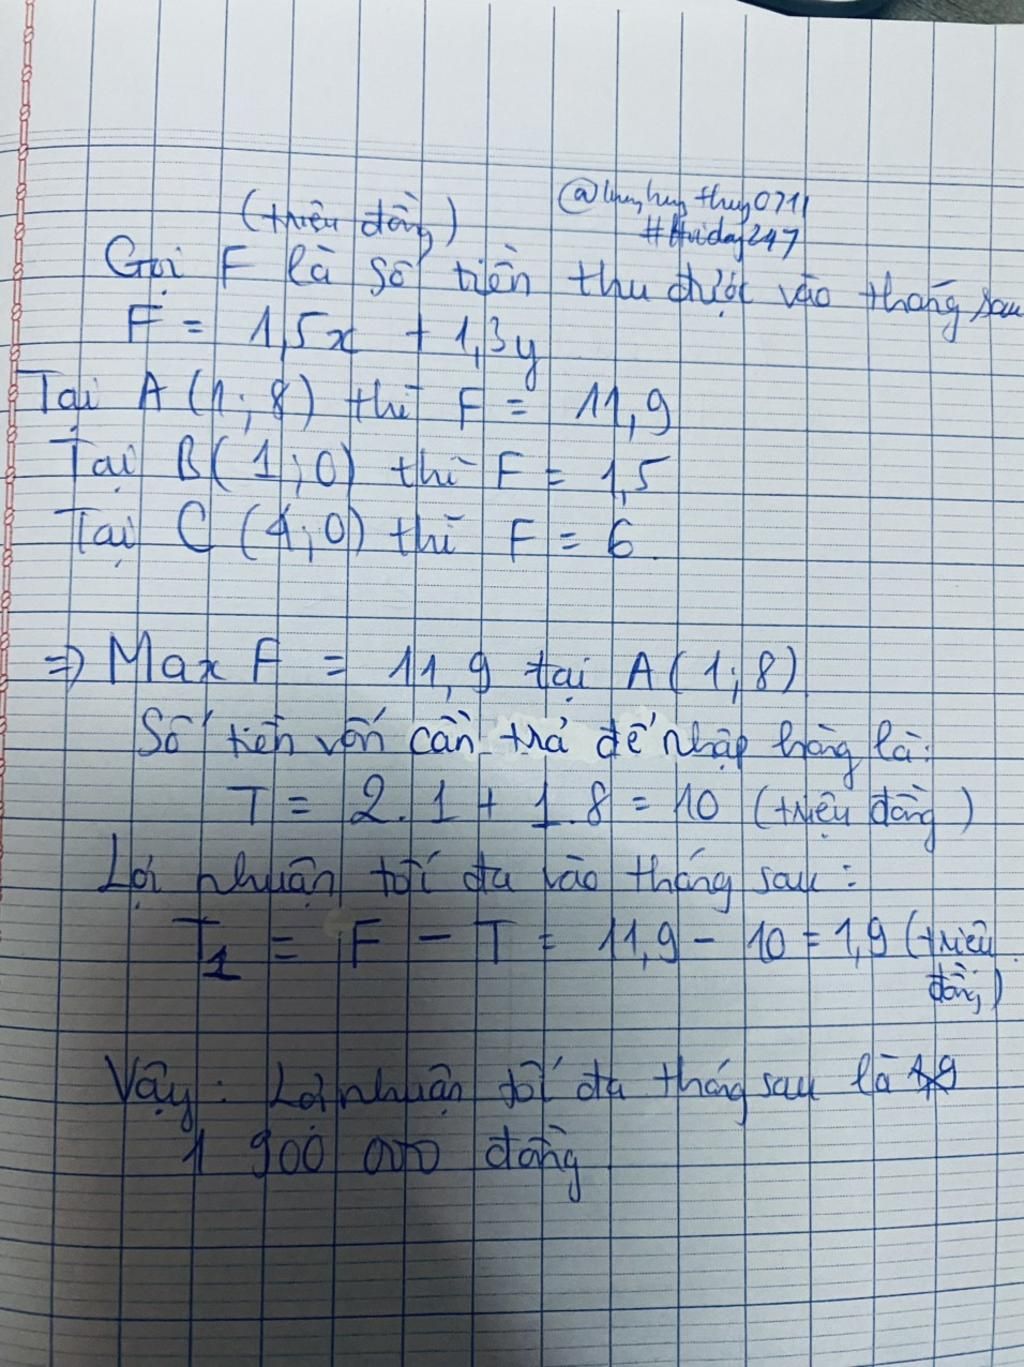 #Huiday247
(triệu đồng)
Gọi F là số tiền thu được vào tháng sau
F = 1,5x + 1,3y
Tại A (1; 8) thì F = 11,9
Tại B( 1; 0) thì F = 1,5
Tại C (4; 0) thì F = 6.
=> Max F = 11,9 tại A( 1; 8)
Số tiền vốn cần trả để nhập hàng là:
T = 2.1 + 1.8 = 10 (triệu đồng)
Lợi nhuận tối đa vào tháng sau:
T1 = F - T = 11,9 - 10 = 1,9 (triệu
đồng)
Vậy: Lợi nhuận tối đa tháng sau là
1 900 000 đồng